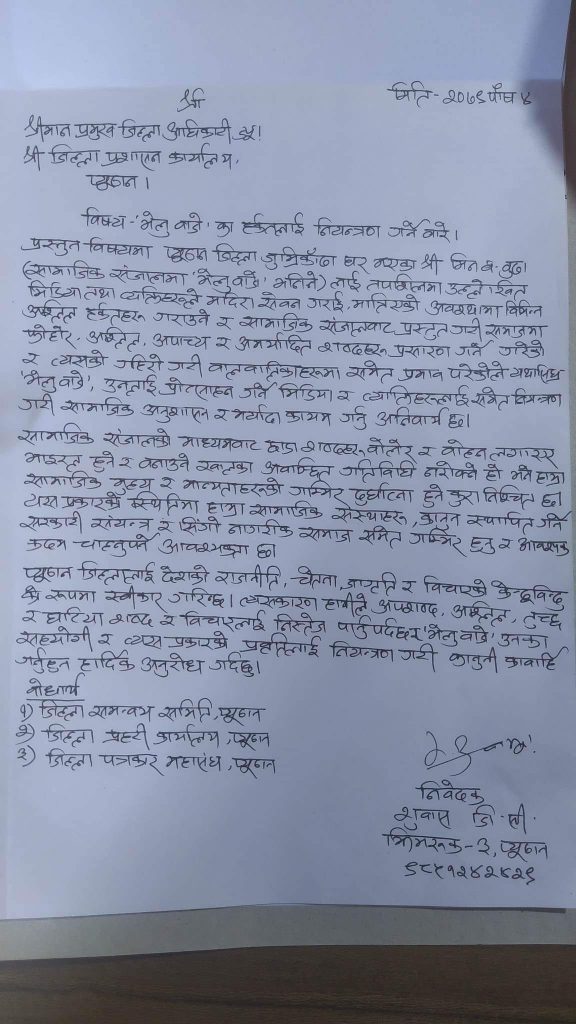 श्री
मिति- २०७९ पौष ४
श्रीमान प्रमुख जिल्ला अधिकारी ज्यू।
श्री जिल्ला प्रशासन कार्यालय,
प्यूठान ।
विषय-'भेलु वाडे' का हर्कतलाई नियन्त्रण गर्ने वारे ।
प्रस्तुत विषयमा प्यूठान जिल्ला जुम्रिकाँडा घर भएका श्री मिन व. वुढा
(सामाजिक संजालमा 'भेलु वाडे' भनिने) लाई तपशीलमा उल्लेखित
मिडिया तथा व्यक्तिहरूले मदिरा सेवन गराई, मातिएको अवस्थामा विभिन्न
अश्लिल हर्कतहरू गराउने र सामाजिक संजालवाट प्रस्तुत गरी समाजमा
फोहोर, अश्लिल, अपाच्य र अमर्यादित शव्दहरू प्रसारण गर्ने गरेको
र त्यसको गहिरो गरी वालवालिकाहरूमा समेत प्रभाव परेकोले यथाशिघ्र
'भेलु वाडे', उनलाई प्रोत्साहन गर्ने मिडिया र व्यक्तिहरूलाई समेत नियन्त्रण
गरी सामाजिक अनुशासन र मर्यादा कायम गर्नु अनिवार्य छ।
सामाजिक संजालको माध्यमवाट छाडा शव्दहरू वोलेर र वोल्न लगाएर
भाइरल हुने र वनाउने खालका अवाञ्छित गतिविधी नरोक्ने हो भने हाम्रा
सामाजिक मुल्य र मान्यताहरूको गम्भिर दुर्घटना हुने कुरा निश्चित छ।
यस प्रकारको स्थितिमा हाम्रा सामाजिक संस्थाहरू, कानुन स्थापित गर्ने
सरकारी संयन्त्र र सिंगो नागरीक समाज समेत गम्भिर हुनु र आवश्यक
कदम चाल्नुपर्ने आवश्यकता छ।
प्यूठान जिल्लालाई देशको राजनीति, चेतना, जागृति र विचारको केन्द्रविन्दु
को रूपमा स्वीकार गरिन्छ। त्यसकारण हामीले अपशव्द, अश्लिल, तुच्छ
र घटिया शव्द र विचारलाई निस्तेज पार्नुपर्दछ र 'भेलु वाडे' उनका
सहयोगी र त्यस प्रकारको प्रवृत्तिलाई नियन्त्रण गरी कानुनी कार्वाहि
गर्नुहुन हार्दिक अनुरोध गर्दछु।
वोधार्थ
१) जिल्ला समन्वय समिति, प्यूठान
२) जिल्ला प्रहरी कार्यालय, प्यूठान
३) जिल्ला पत्रकार महासंघ, प्यूठान
निवेदक
शुवास डि. सी.
झिमरूक-३, प्यूठान
९८५१२४२४२९